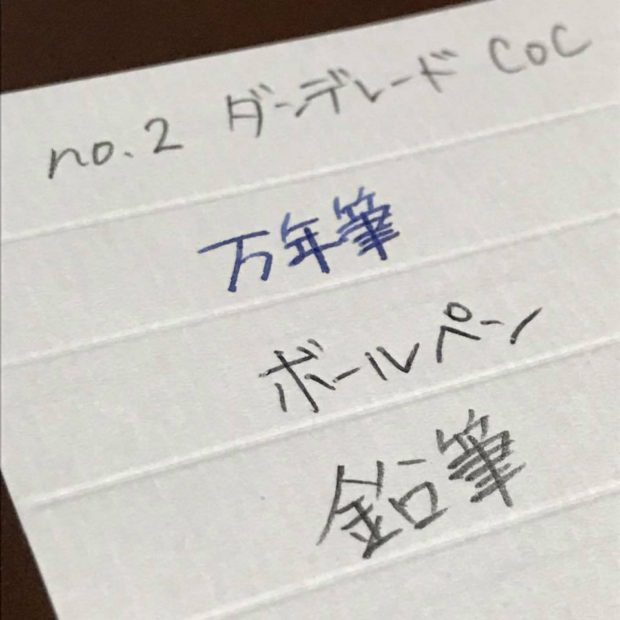 no.2 ダンデレード CoC
万年筆
ボールペン
鉛筆